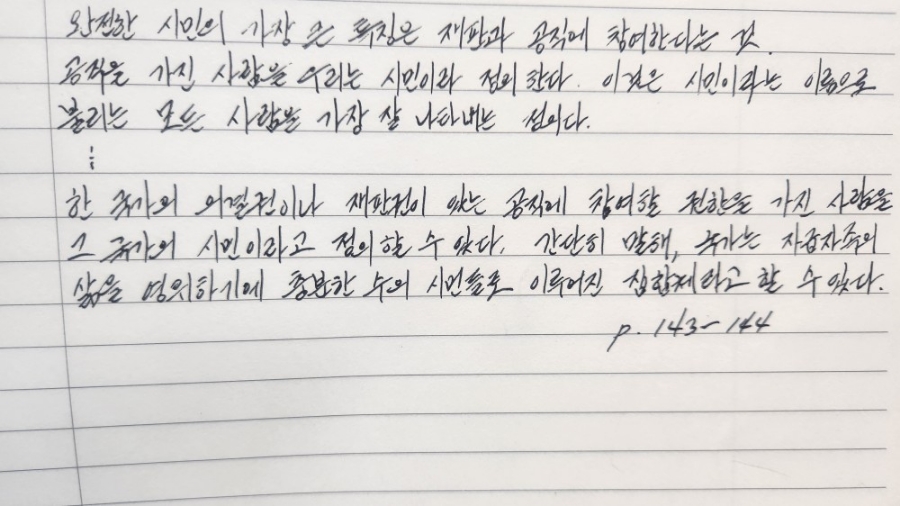 완전한 시민의 가장 큰 특징은 재판과 공직에 참여한다는 것.
공직을 가진 사람을 우리는 시민이라 정의한다. 이것은 시민이라는 이름으로
불리는 모든 사람을 가장 잘 나타내는 정의다.
⋮
한 국가의 의결권이나 재판권이 있는 공직에 참여할 권한을 가진 사람을
그 국가의 시민이라고 정의할 수 있다. 간단히 말해, 국가는 자급자족의
삶을 영위하기에 충분한 수의 시민들로 이루어진 집합체라고 할 수 있다.
p. 143-144